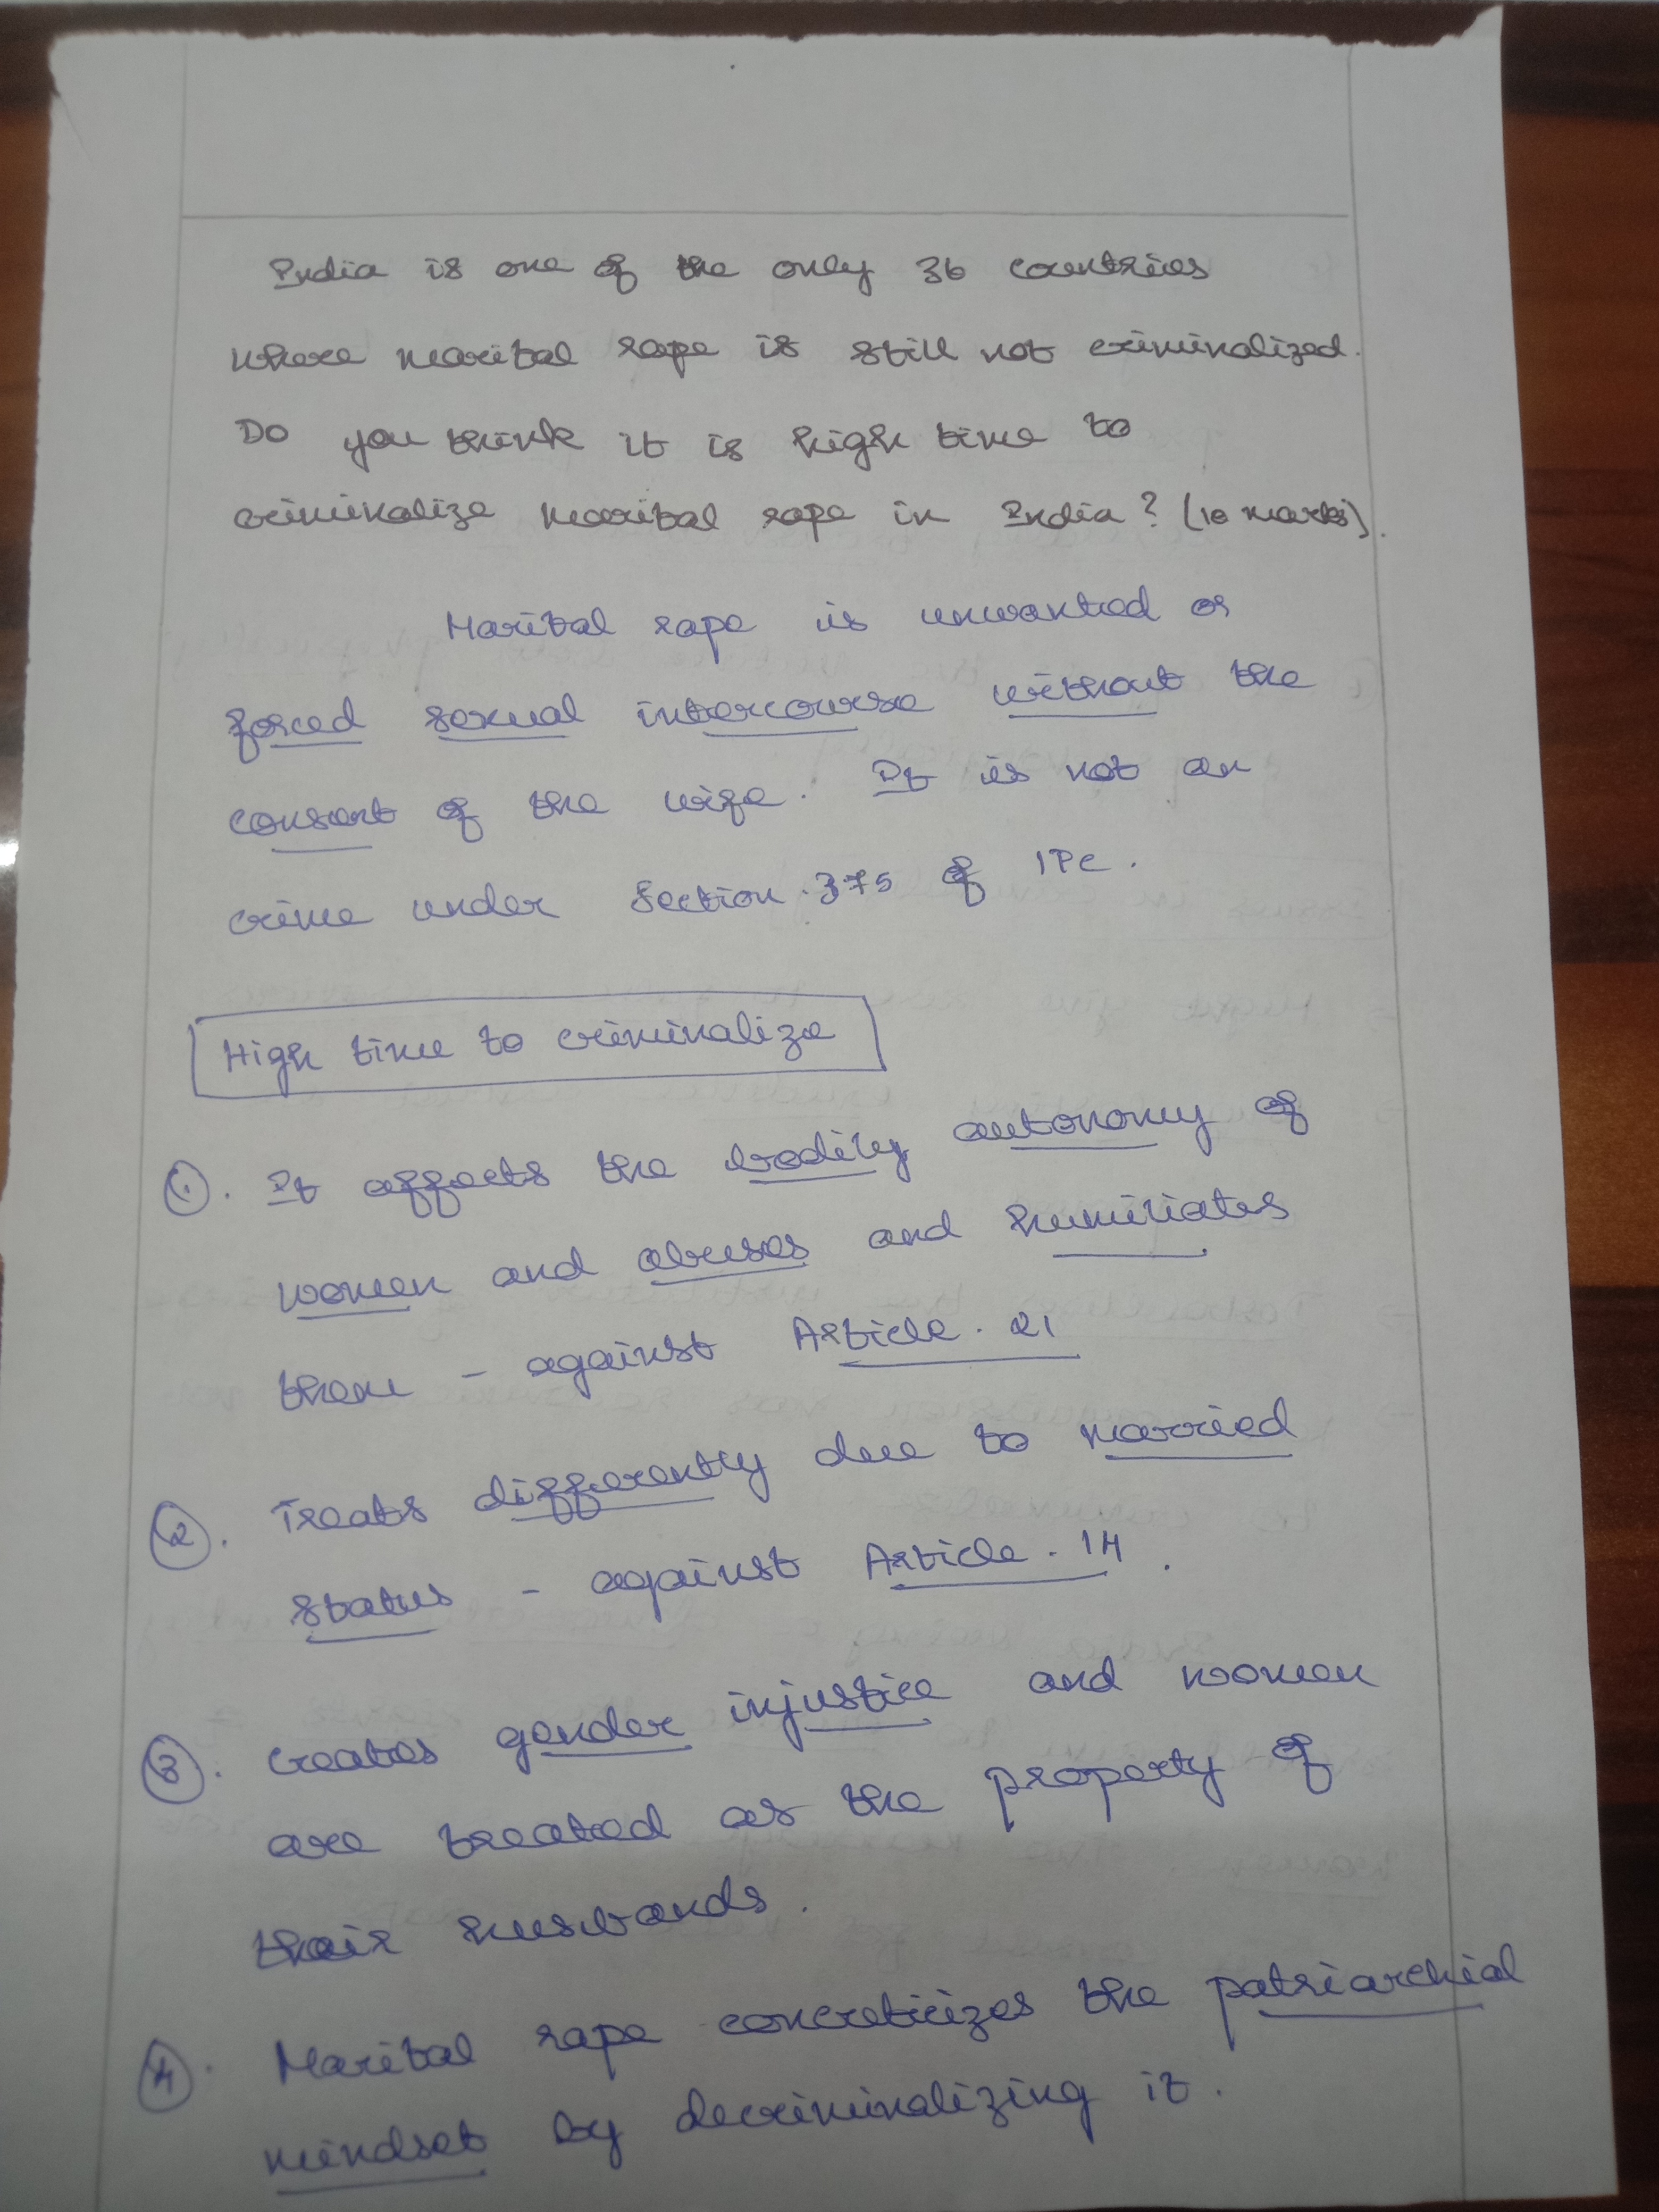 India is one of the only 36 countries
where marital rape is still not criminalized.
Do you think it is high time to
criminalize marital rape in India? (10 marks).
Marital rape is unwanted or
forced sexual intercourse without the
consent of the wife. It is not an
crime under Section.375 of IPC.
High time to criminalize
1. It affects the bodily autonomy of
women and abuses and humiliates
them - against Article.21
2. Treats differently due to married
status - against Article.14.
3. Creates gender injustice and women
are treated as the property of
their husbands.
4. Marital rape concreticizes the patriarchial
mindset by decriminalizing it.